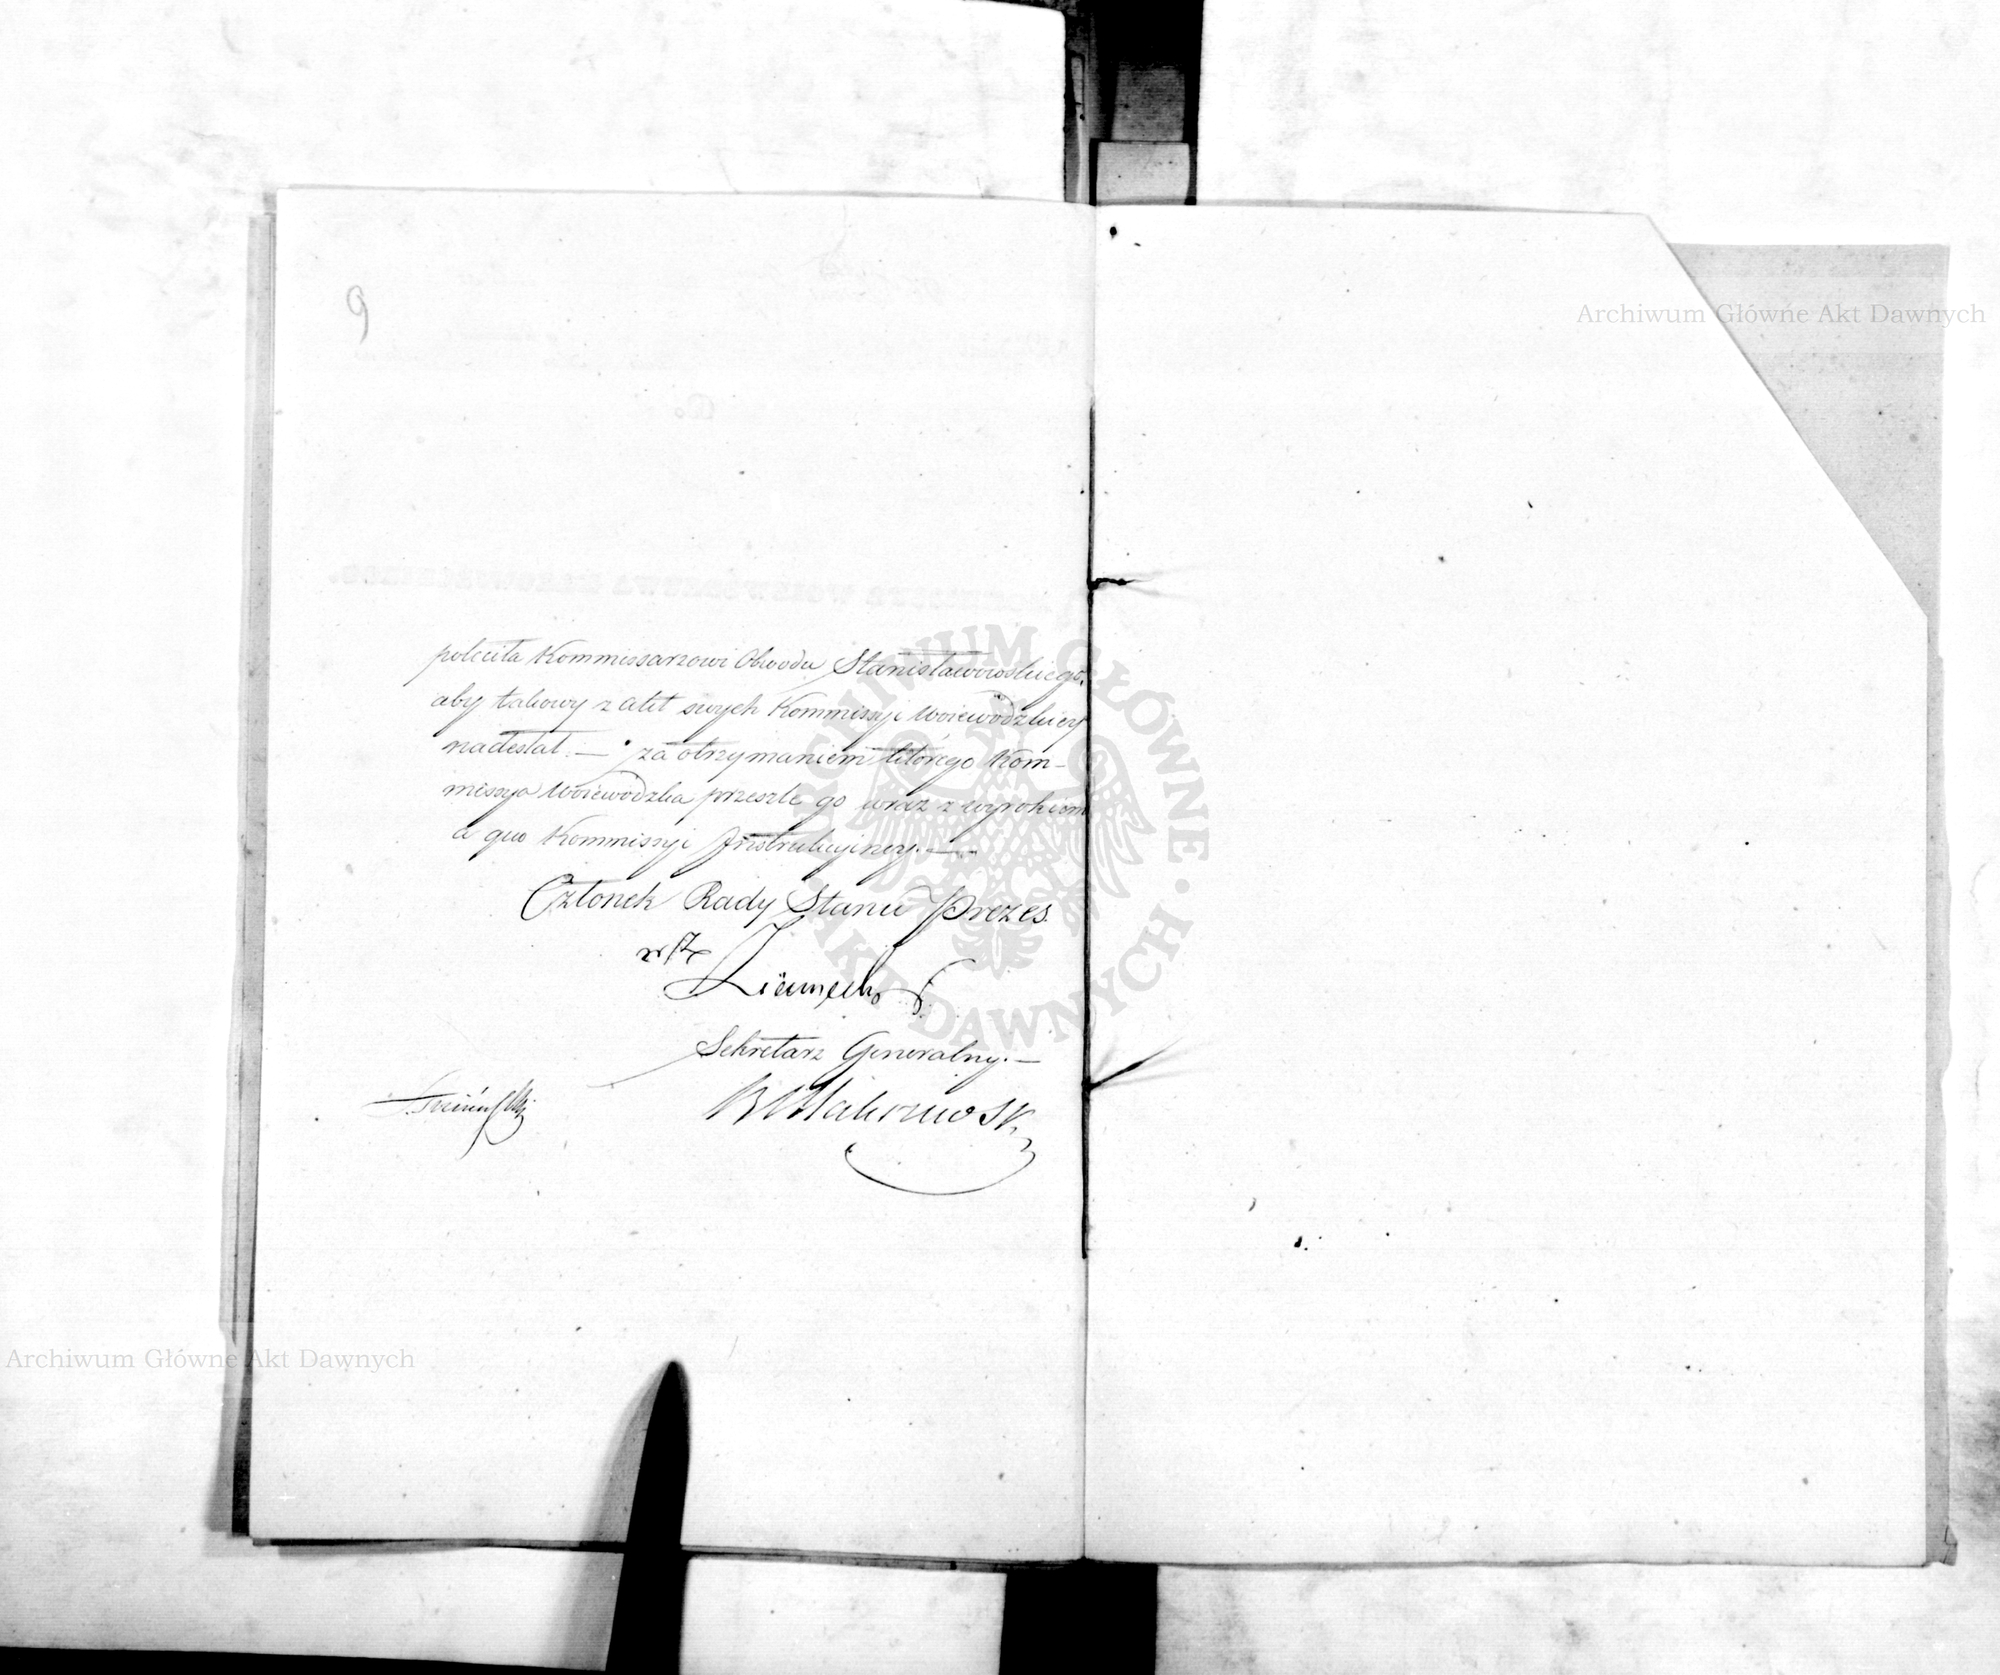 9
poleciła Kommissarzowi Obwodu Stanisławowskiego,
aby takowy z akt swych Kommissyi Woiewódzkiey
nadesłał. — za otrzymaniem którego Kom-
missya Woiewódzka prześle go wraz z wyrokiem
a quo Kommissyi Instrukcyiney. —
Członek Rady Stanu Prezes.
w/z
Sekretarz Generalny. —
Archiwum Główne Akt Dawnych
Archiwum Główne Akt Dawnych
ARCHIWUM GŁÓWNE · AKT DAWNYCH ·